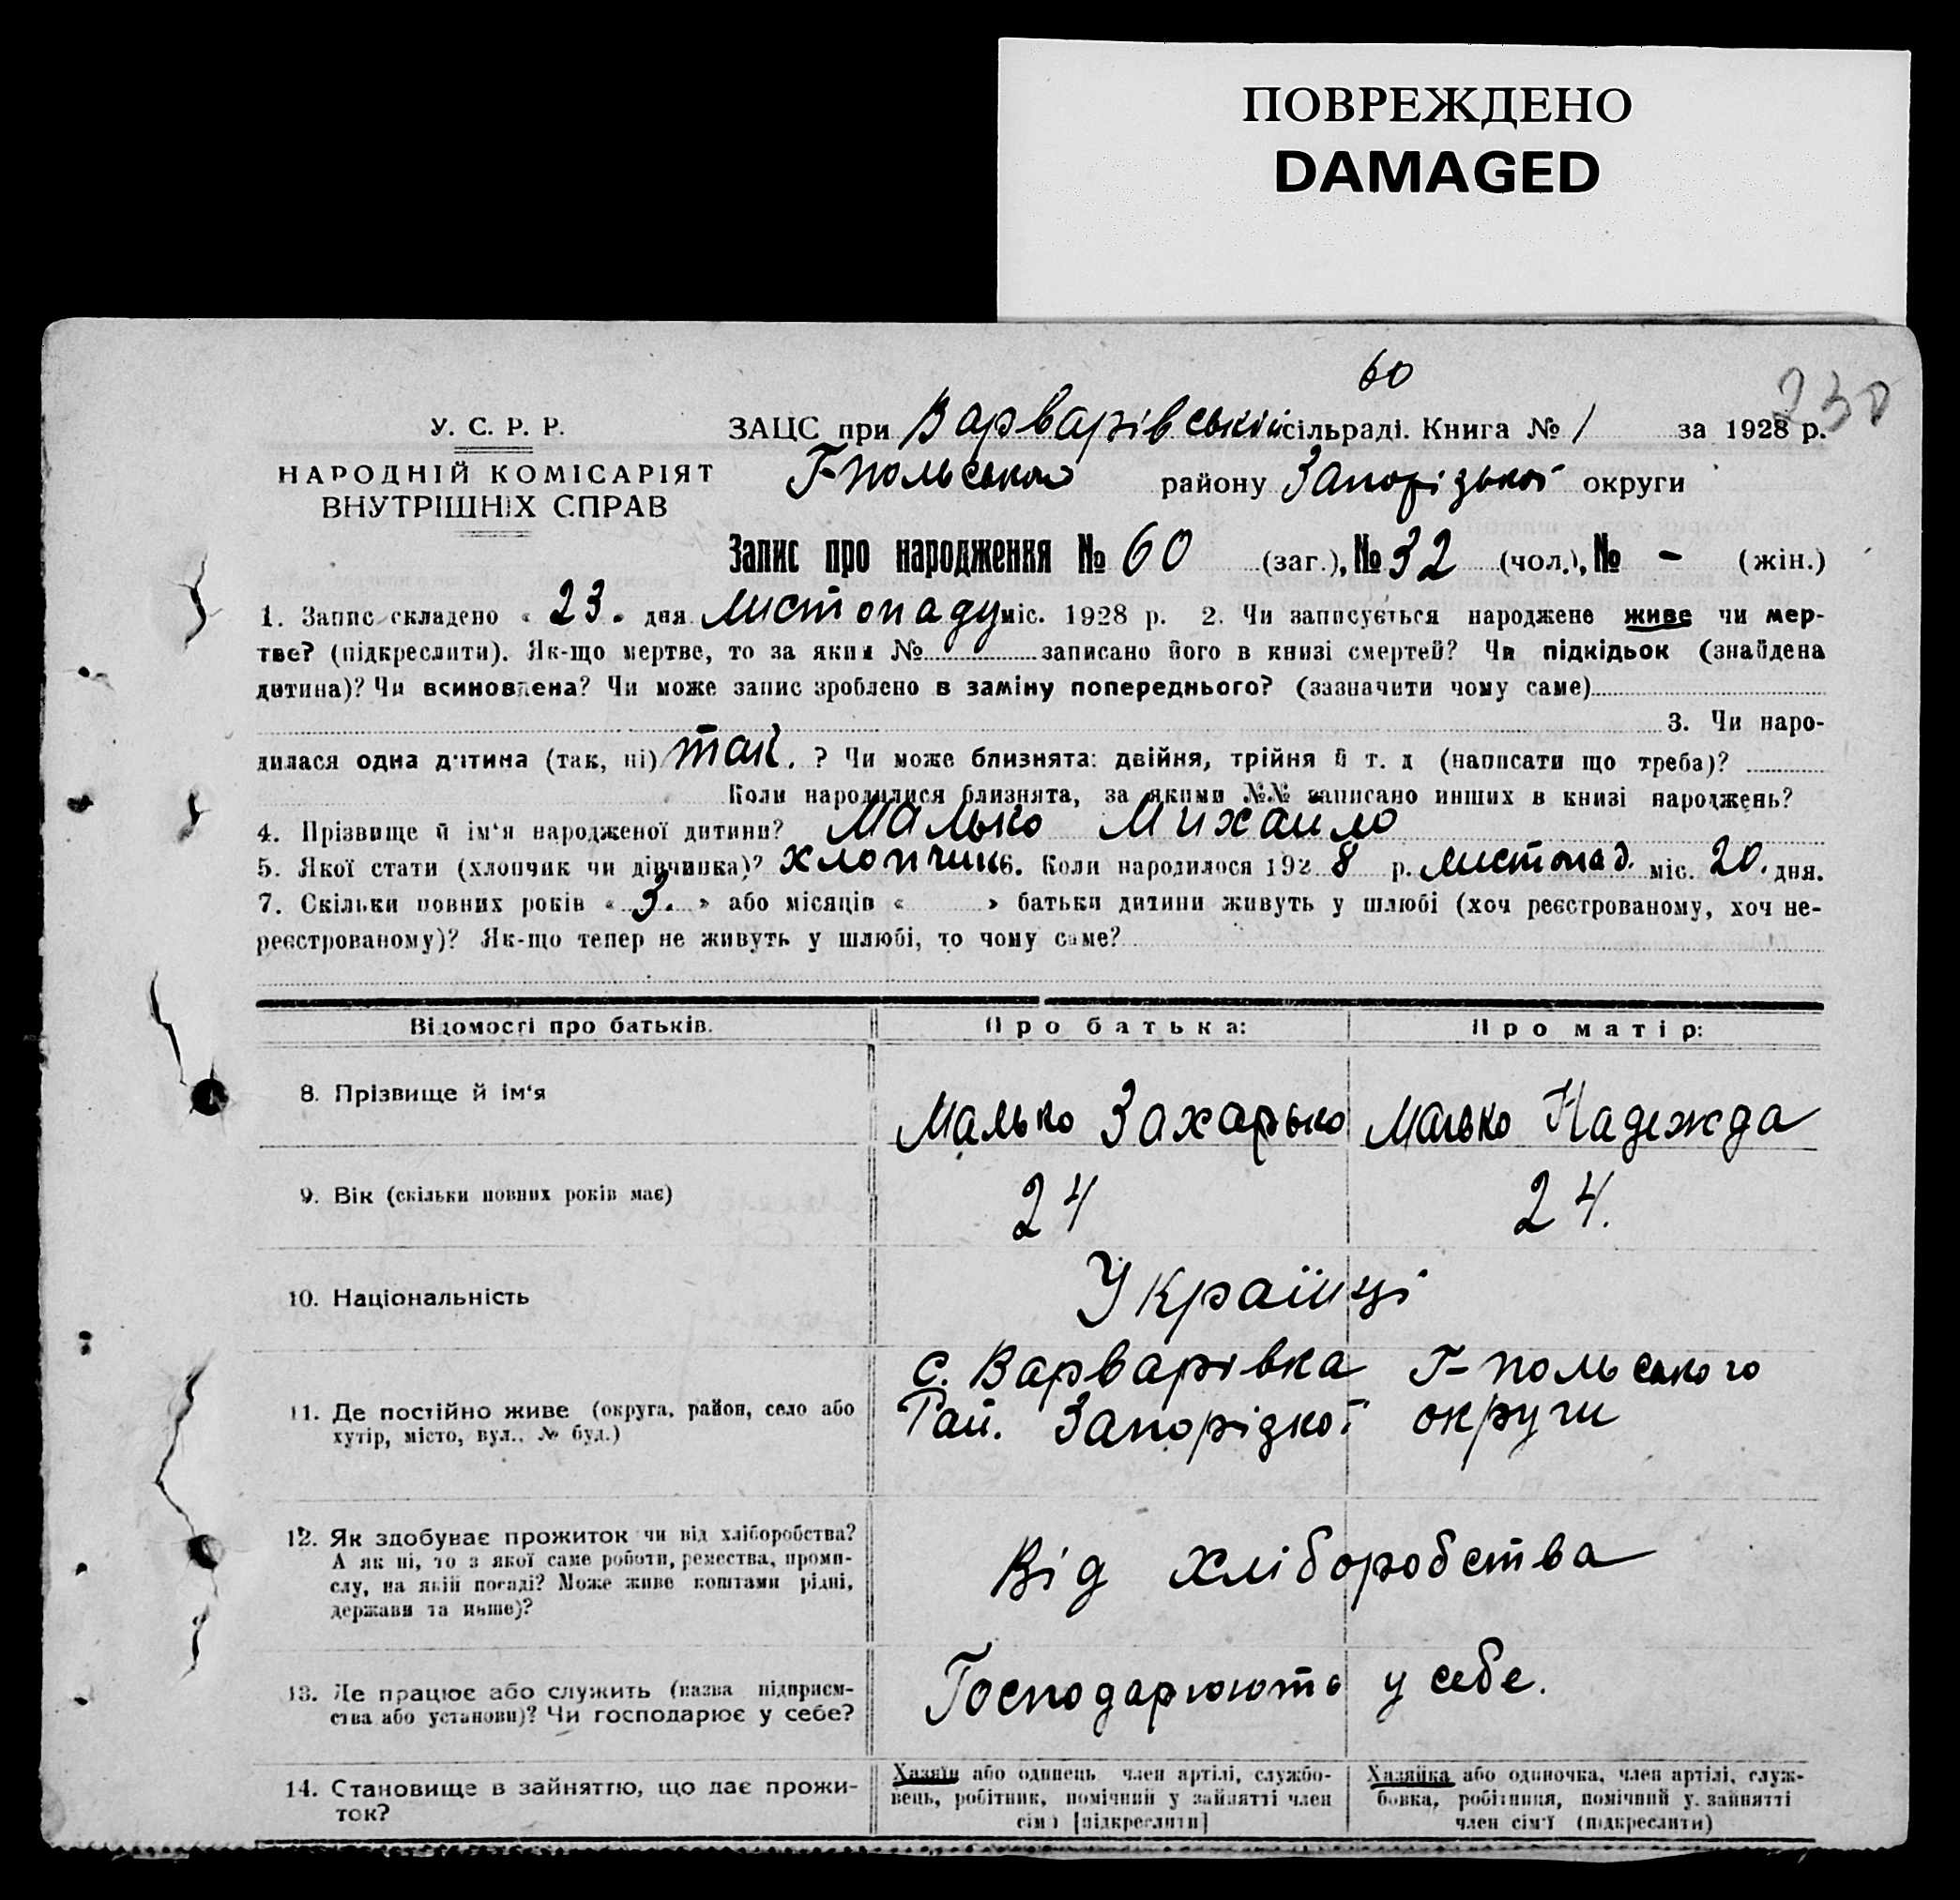 ПОВРЕЖДЕНО
DAMAGED
60
230
У. С. Р. Р.
НАРОДНІЙ КОМІСАРІЯТ
ВНУТРІШНІХ СПРАВ
ЗАЦС при Варварівській сільраді. Книга № 1 за 1928 р.
Г-польського району Запорізької округи
Запис про народження № 60 (заг.), № 32 (чол.), № - (жін.)
1. Запис складено « 23 » дня листопаду міс. 1928 р. 2. Чи записується народжене живе чи мер-
тве? (підкреслити). Як-що мертве, то за яким № записано його в книзі смертей? Чи підкідьок (знайдена
дитина)? Чи всиновлена? Чи може запис зроблено в заміну попереднього? (зазначити чому саме)
3. Чи наро-
дилася одна дитина (так, ні) так. ? Чи може близнята: двійня, трійня й т. д (написати що треба)?
Коли народилися близнята, за якими №№ записано инших в книзі народжень?
4. Прізвище й ім‘я народженої дитини? Малько Михайло
5. Якої стати (хлопчик чи дівчинка)? хлопчик 6. Коли народилося 192 8 р. листопад. міс. 20. дня.
7. Скільки повних років « 3. » або місяців « » батьки дитини живуть у шлюбі (хоч реєстрованому, хоч не-
реєстрованому)? Як-що тепер не живуть у шлюбі, то чому саме?
Відомості про батьків. Про батька: Про матір:
8. Прізвище й ім‘я Малько Захарько Малько Надежда
9. Вік (скільки повних років має) 24 24.
10. Національність Українці
11. Де постійно живе (округа, район, село або
хутір, місто, вул., № буд.)
с. Варварівка Г-польського
Рай. Запорізкої округи
12. Як здобуває прожиток чи від хліборобства?
А як ні, то з якої саме роботи, ремества, проми-
слу, на якій посаді? Може живе коштами рідні,
держави та инше)?
Від хліборобства
13. Де працює або служить (назва підприєм-
ства або установи)? Чи господарює у себе?
Господарюють у себе.
14. Становище в зайняттю, що дає прожи-
ток?
Хазяїн або одинець член артілі, службо-
вець, робітник, помічний у зайнятті член
сім‘ї [підкреслити]
Хазяйка або одиночка, член артілі, служ-
бовка, робітниця, помічний у зайнятті
член сім‘ї (підкреслити)